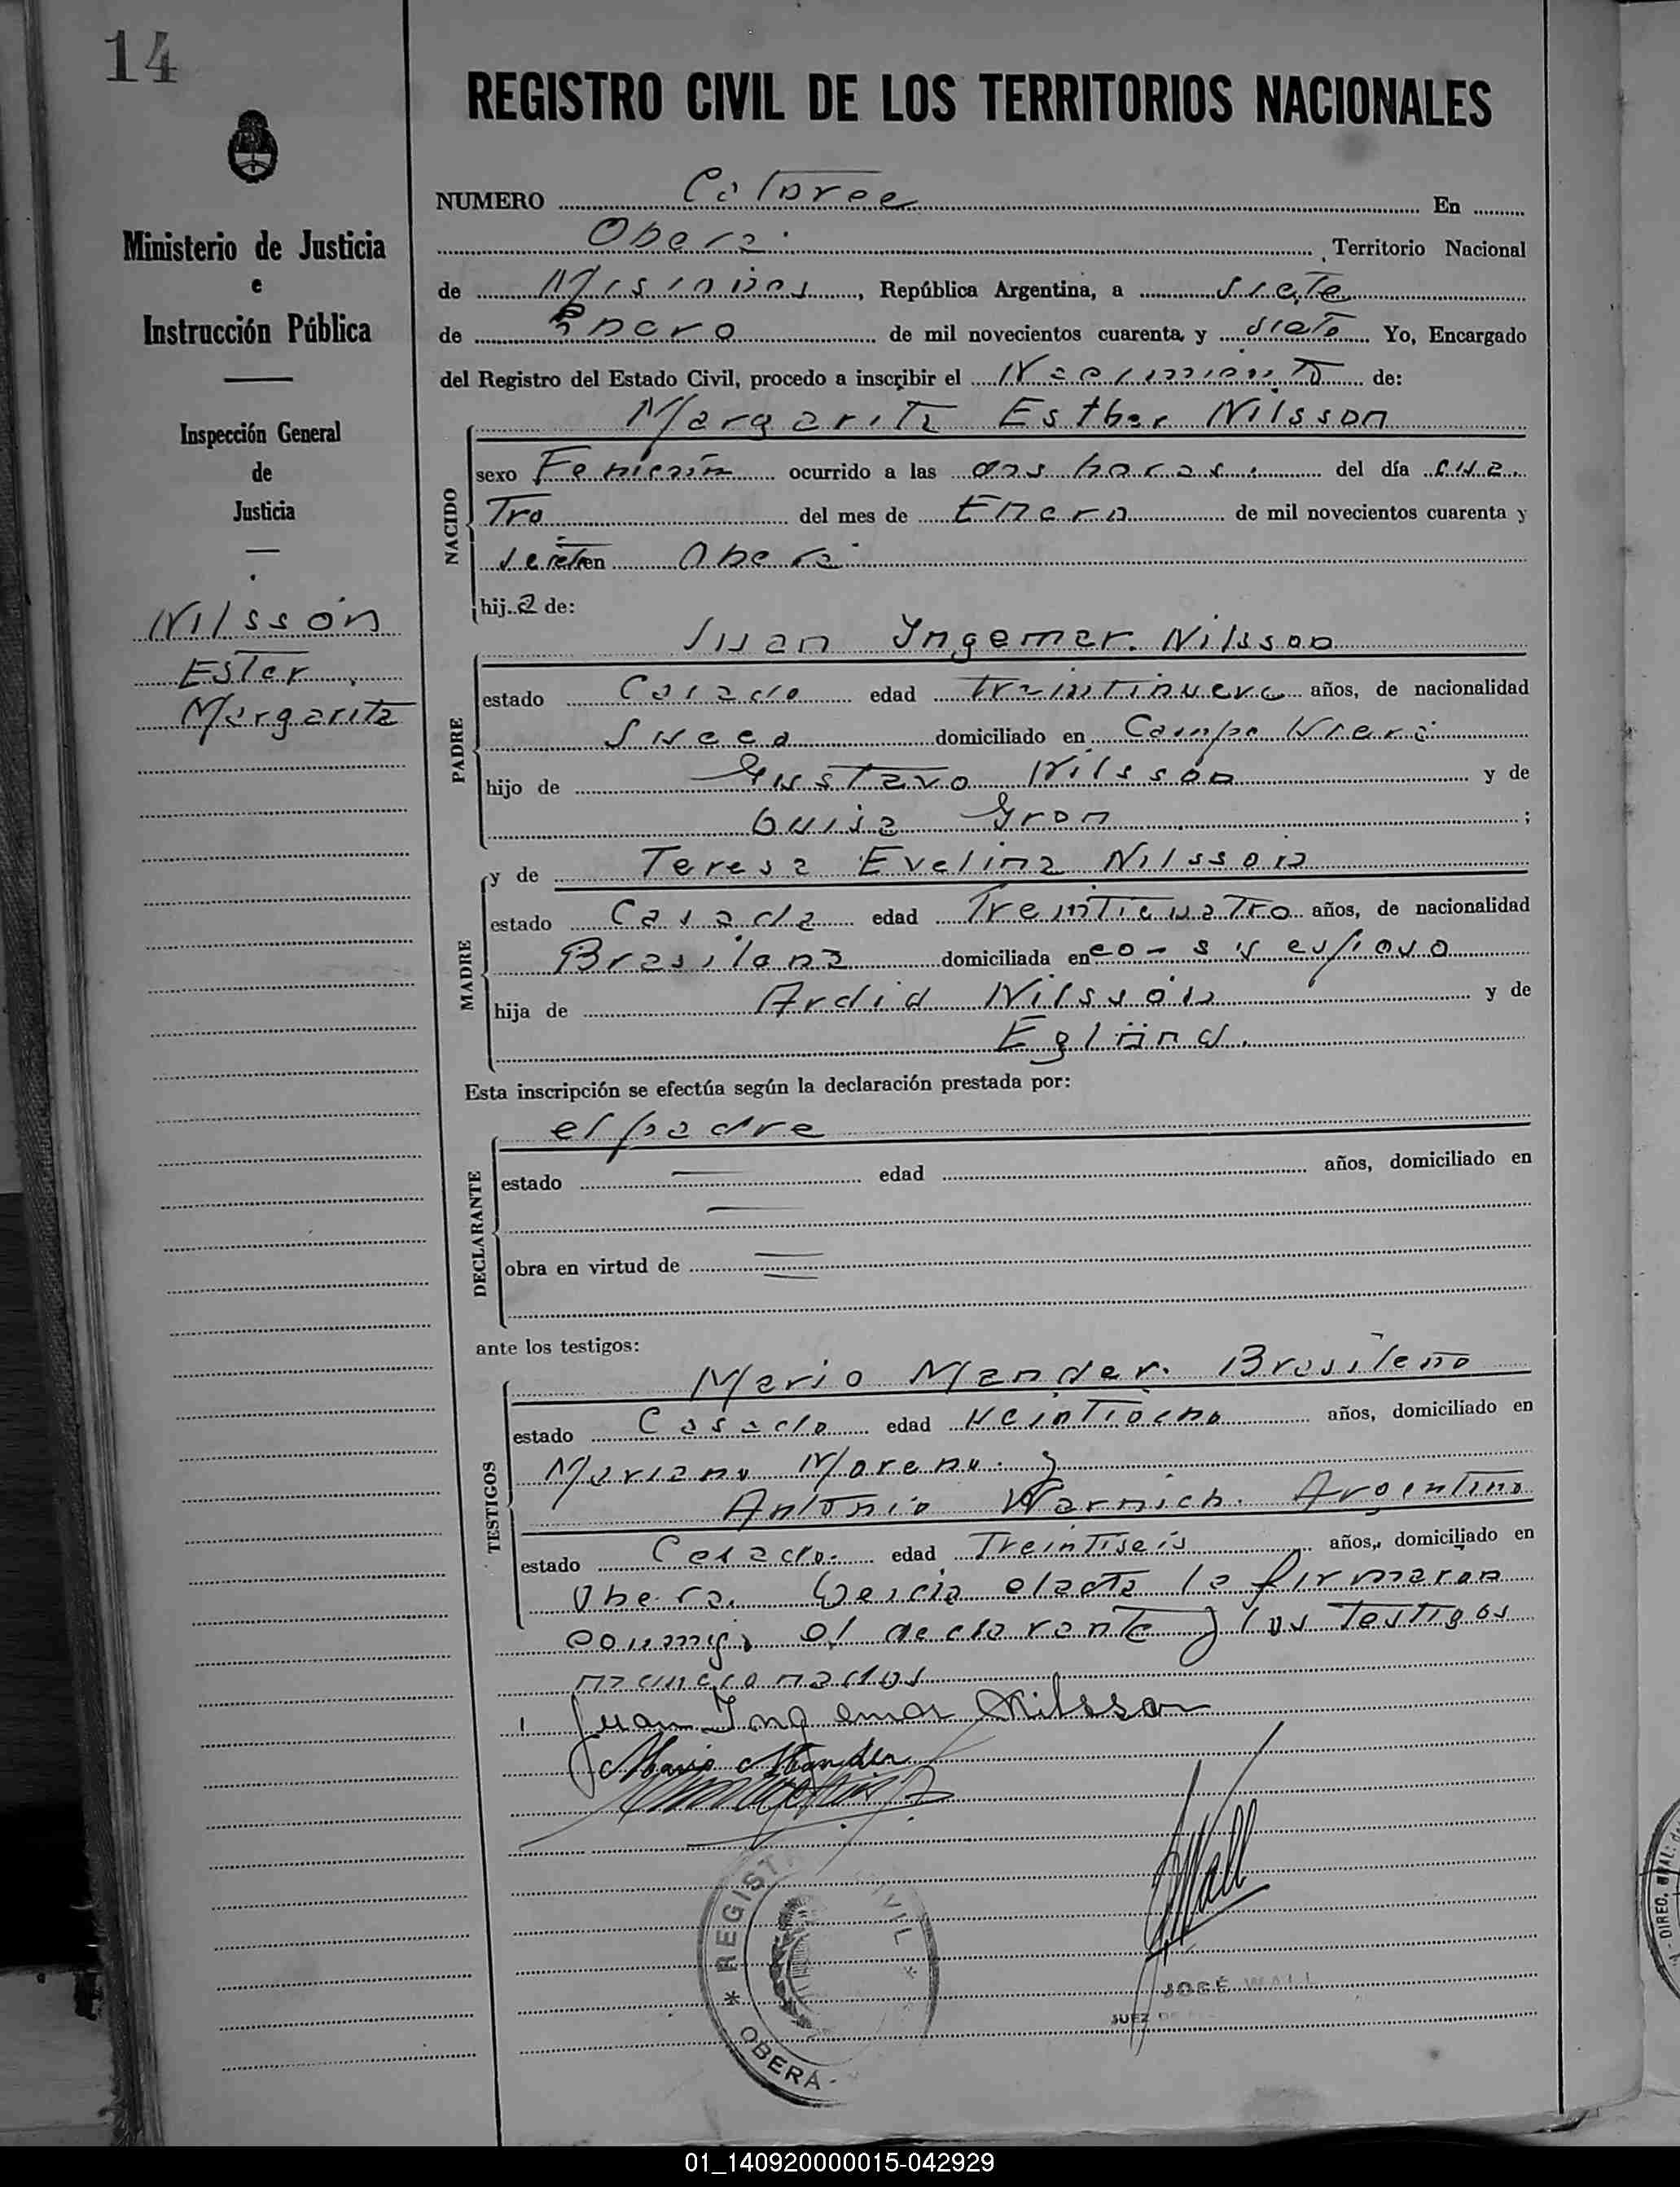 14
REGISTRO CIVIL DE LOS TERRITORIOS NACIONALES
Ministerio de Justicia
e
Instrucción Pública
Inspección General
de
Justicia
Nilsson
Ester
Margarita
NUMERO Catorce En
Oberá , Territorio Nacional
de Misiones, República Argentina, a siete
de Enero de mil novecientos cuarenta y siete Yo, Encargado
del Registro del Estado Civil, procedo a inscribir el Nacimiento de:
Margarita Esther Nilsson
NACIDO
sexo Femenin ocurrido a las dos horas. del día cua
tro del mes de Enero de mil novecientos cuarenta y
siete en Oberá
hija de:
Juan Ingemar. Nilsson
PADRE
estado Casado edad treintinueve años, de nacionalidad
Sueca domiciliado en Campo Viera
hijo de Gustavo Nilsson y de
Luisa Gron ;
MADRE
y de Teresa Evelina Nilsson
estado Casada edad Treinticuatro años, de nacionalidad
Brasilana domiciliada en co- su esposo
hija de Ardid Nilsson y de
Eglünd.
Esta inscripción se efectúa según la declaración prestada por:
el padre
DECLARANTE
estado edad años, domiciliado en
obra en virtud de
ante los testigos:
TESTIGOS
Mario Mander. Brasileño
estado Casado edad Veintiocho años, domiciliado en
Mariano Moreno. y
Antonio Warnich. Argentino
estado Casado. edad Treintiseis años, domiciliado en
Oberá. Leida el acta la firmaron
conmigo el declarante y los testigos
mencionados
Juan Ingemar Nilsson
Mario Mander
Wall
REGIST CIVIL
* OBERÁ - *
JOSÉ WALL
JUEZ DE
- DIREC. GRAL. de
01_140920000015-042929